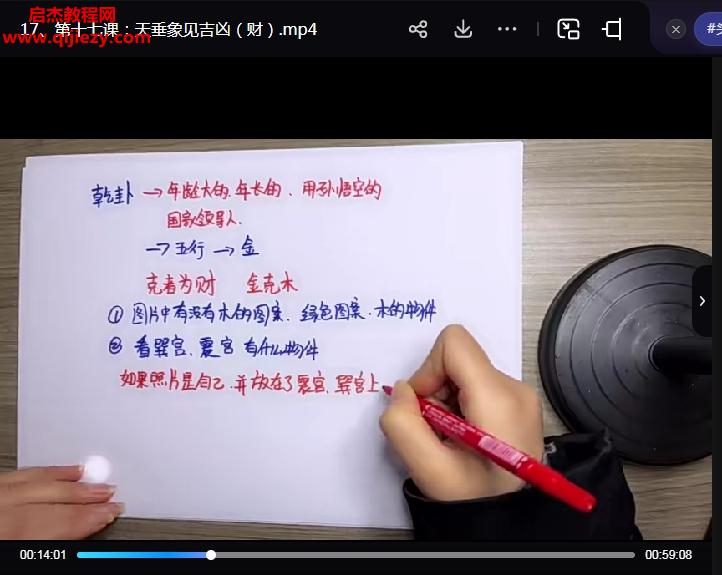 启杰教程网
www.qijiezy.com
17、第十七课：天垂象见吉凶（财）.mp4
乾卦 → 年龄大的、年长的、用孙悟空的
国家领导人.
→ 五行 → 金
克者为财 金克木
① 图片中有没有木的图案、绿色图案、木的物件
② 看巽宫、震宫 有什么物件
如果照片是自己、并放在了震宫、巽宫上
00:14:01
00:59:08